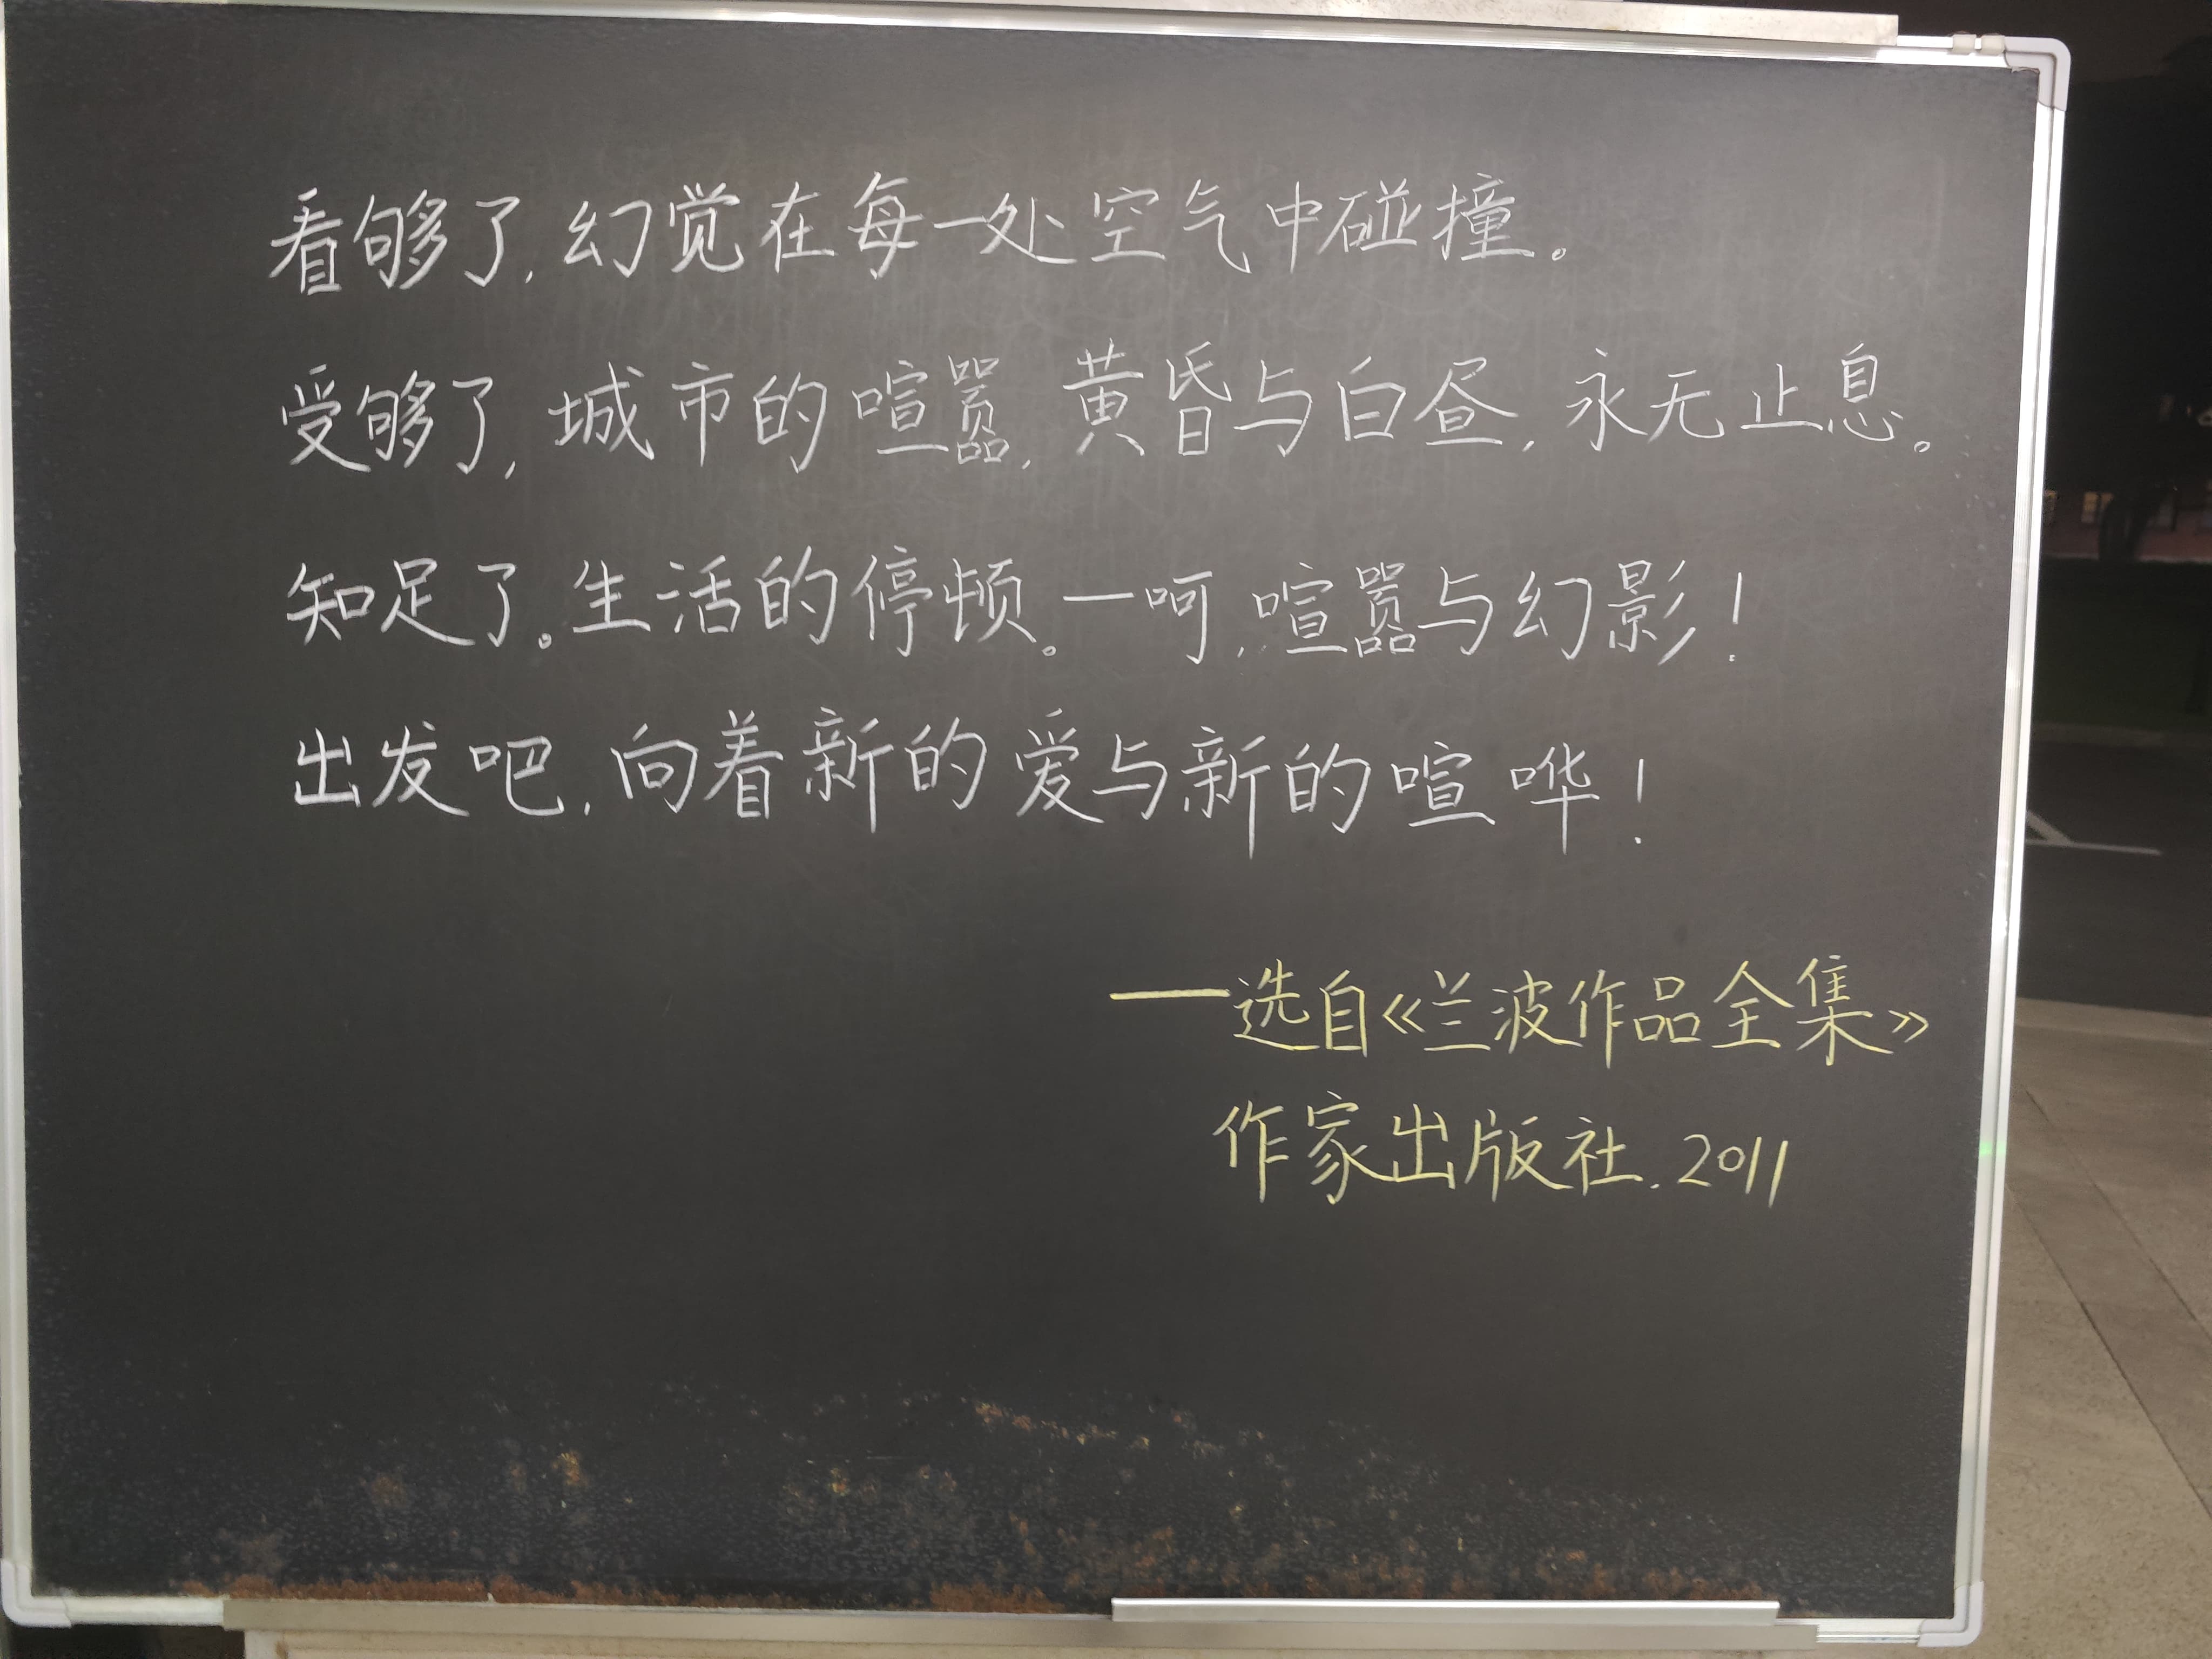 看够了,幻觉在每一处空气中碰撞。
受够了,城市的喧嚣,黄昏与白昼,永无止息。
知足了。生活的停顿。—呵,喧嚣与幻影!
出发吧,向着新的爱与新的喧哗!
——选自《兰波作品全集》
作家出版社.2011